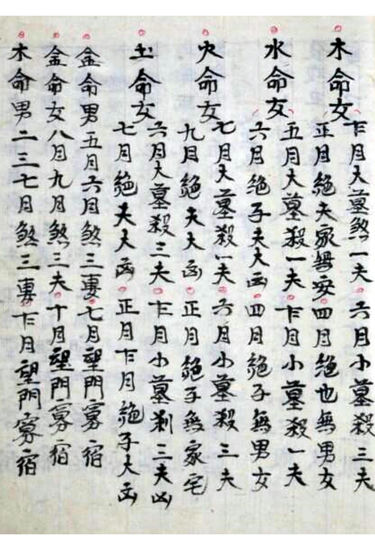 木命女
乍月大墓煞一夫 六月小墓殺三夫
正月絕夫家無安 四月絕也無男女
水命女
五月大墓殺一夫 乍月小墓殺一夫
六月絕子夫大凶 四月絕子無男女
火命女
七月大墓殺一夫 六月小墓殺三夫
九月絕夫大凶 正月絕子無家宅
土命女
六月大墓殺三夫 乍月小墓刹三夫凶
七月絕夫大凶 正月乍月絕子大凶
金命男五月六月煞三妻 七月望門寡宿
金命女八月九月煞三夫 十月望門寡宿
木命男二三七月煞三妻 乍月望門寡宿